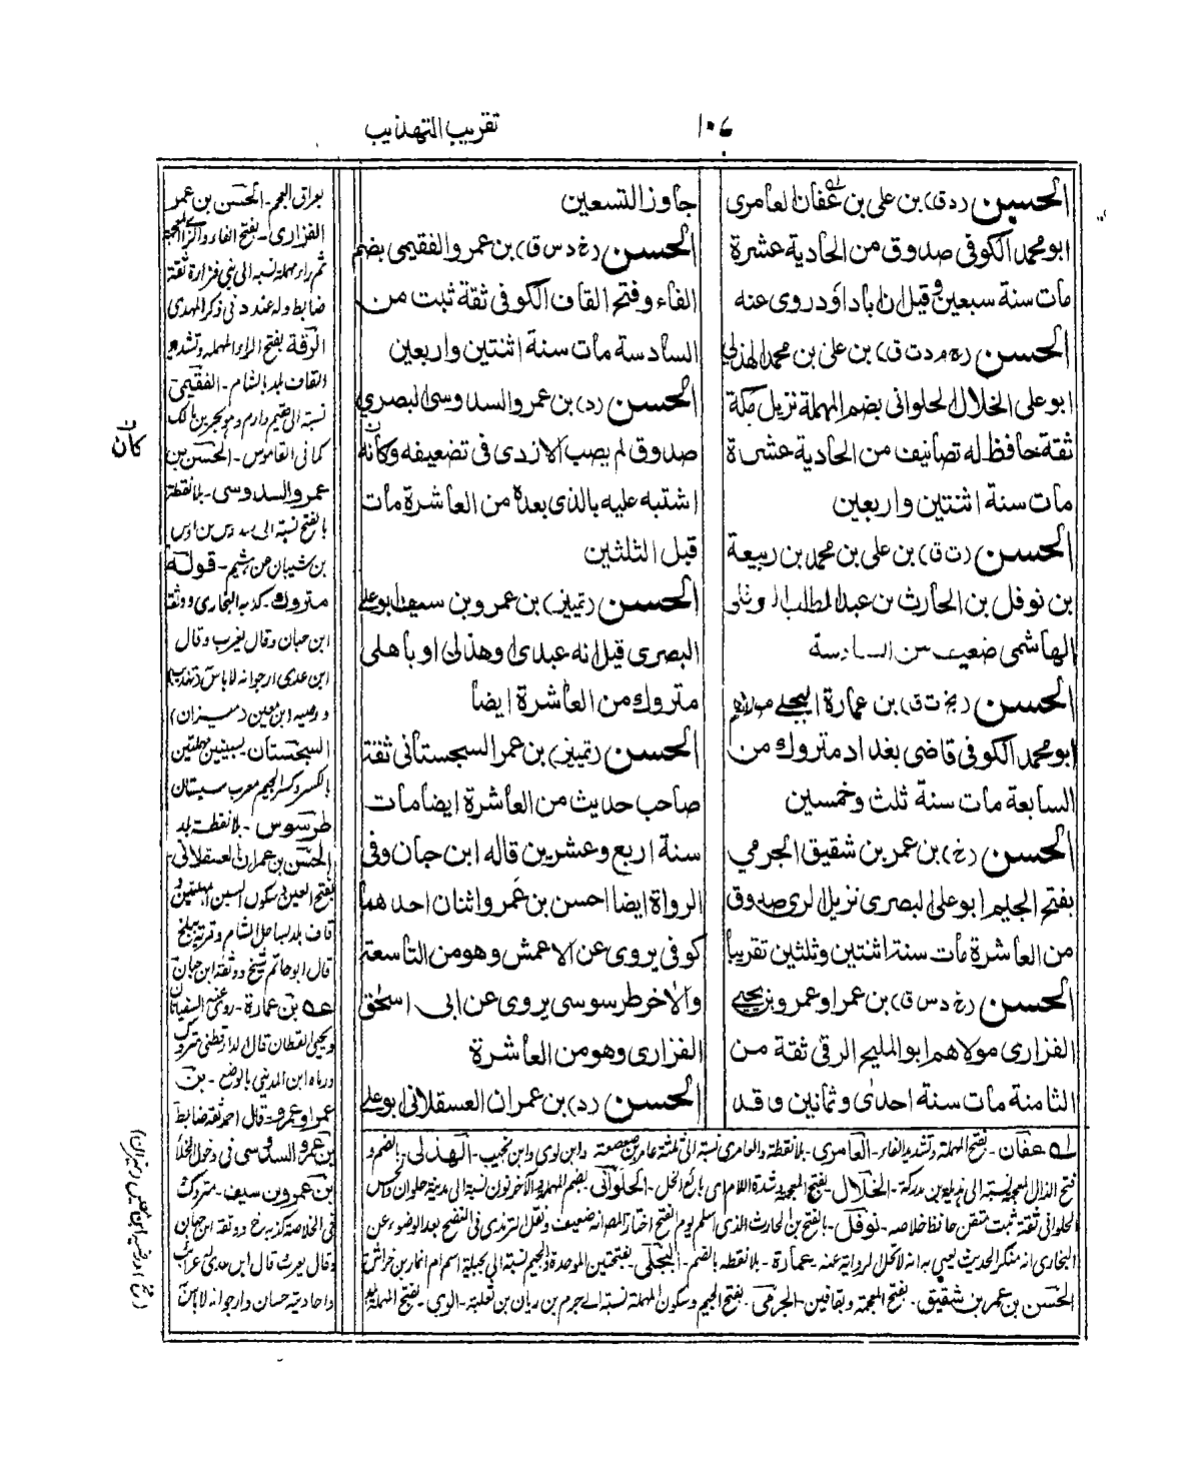 تقريب التهذيب
١٠٦
الحسين (د ق) بن على بن عفان العامرى
ابو محمد الكوفى صدوق من الحادية عشرة
مات سنة سبعين وقيل ان ابا داود روى عنه
الحسن (خ م د ت ق) بن على بن محمد الهذلى
ابو على الخلال الحلوانى بضم المهملة نزيل مكة
ثقة حافظ له تصانيف من الحادية عشرة
مات سنة اثنتين واربعين
الحسن (ت ق) بن على بن محمد بن ربيعة
بن نوفل بن الحارث بن عبد المطلب النوفلى
الهاشمى ضعيف من السادسة
الحسن (خت ت ق) بن عمارة البجلى مولاهم
ابو محمد الكوفى قاضى بغداد متروك من
السابعة مات سنة ثلث وخمسين
الحسن (خ) بن عمر بن شقيق الجرمي
بفتح الجيم ابو على البصرى نزيل الرى صدوق
من العاشرة مات سنة اثنتين وثلثين تقريبا
الحسن (خ د س ق) بن عمر او عمرو بن يحيى
الفزارى مولاهم ابو المليح الرقى ثقة من
الثامنة مات سنة احدى وثمانين وقد
جاوز التسعين
الحسن (خ د س ق) بن عمرو الفقيمى بضم
الفاء وفتح القاف الكوفى ثقة ثبت من
السادسة مات سنة اثنتين واربعين
الحسن (د) بن عمرو السدوسى البصري
صدوق لم يصب الازدى فى تضعيفه وكانه
اشتبه عليه بالذى بعده من العاشرة مات
قبل الثلثين
الحسن (تمييز) بن عمرو بن سيف ابو على
البصرى قيل انه عبدى او هذلى او باهلى
متروك من العاشرة ايضا
الحسن (تمييز) بن عمر السجستانى ثقة
صاحب حديث من العاشرة ايضا مات
سنة اربع وعشرين قاله ابن حبان وفى
الرواة ايضا احسن بن عمرو اثنان احدهما
كوفى يروى عن الاعمش وهو من التاسعة
والاخر طرسوسى يروى عن ابى اسحق
الفزارى وهو من العاشرة
الحسن (د) بن عمران العسقلانى ابو على
بعراق العجم - الحسن بن عمر
الفزارى - بفتح الفاء والزاى المعجمة
ثم راء مهملة نسبة الى بنى فزارة ثقة
ضابط وله عند د فى ذكر المهدى
الرقة بفتح الراء المهملة وتشديد
القاف بلد بالشام - الفقيمى
كما فى القاموس - الحسن بن
عمرو السدوسى - بلا نقطة
بالفتح نسبة الى سدوس بن
بن شيبان - قوله
متروك - كذبه البخارى ووثقه
ابن حبان وقال يغرب وقال
ابن عدى ارجو انه لا باس
السجستان بسينين مهملتين
بالكسر وكسر الجيم معرب سيستان
طرسوس - بلا نقطة بلد
الحسن بن عمران العسقلانى
بفتح العين وسكون السين المهملتين و
قاف بلد بساحل الشام وقرية ببلخ
قال ابو حاتم شيخ ووثقه ابن حبان
عه بن عمارة - روى عنه السفيانان
ويحيى القطان قال الدارقطنى متروك
ورماه ابن المدينى بالوضع - بن
عمر او عمرو - قال احمد ثقة ضابط
بن عمرو بن سيف - متروك
فى الخلاصة كذبه خ ووثقه ابن حبان
وقال يغرب قال ابن عدى
واحاديثه حسان وارجو انه لا باس
كان
له عفان - بفتح المهملة وتشديد الفاء - العامرى - بلا نقطة
فتح الذال المعجمة نسبة الى هذيل بن مدركة - الخلال - بفتح المعجمة وشدة اللام اى بائع الخل - الحلوانى - بضم المهملة
الحلوانى ثقة ثبت متقن حافظ خلاصه - نوفل - بالفتح بن الحارث الذى اسلم يوم الفتح
البخارى انه منكر الحديث يعنى به انه لا تحل الرواية عنه - عمارة - بلا نقطه بالضم - البجلى - بفتحتين الموحدة والجيم نسبة الى بجيلة اسم ام انمار بن
الحسن بن عمر بن شقيق - بفتح المعجمة وبقافين - الجرمى - بفتح الجيم وسكون المهملة نسبة الى جرم بن ربان بن ثعلبة - الرى - بفتح المهملة بلد